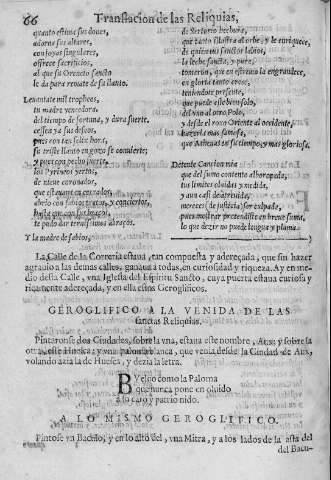 66
Translacion de las Reliquias,
quanto estima sus dones,
adorna sus altares,
con joyas singulares,
offrece sacrificios,
al que fu Orencio sancto
le da para remate de su llanto.
Leuantate mil tropheos,
tu madre vencedora
del tiempo de fortuna, y dura suerte,
cessen ya sus desseos,
pues con tan felix hora,
su triste llanto en gozo se conuierte;
y pues con pecho fuerte,
los Pyrineos yertos,
de nieue coronados,
que estauan cerrados,
abrio con sabios tratos, y conciertos,
hasta que con sus braços,
te pudo dar ternissimos abraços.
Y la madre de sabios,
de Sertorio hechura,
que tanto illustra al orbe, y le enriquece;
de quien mis sanctos labios,
la leche sancta, y pura,
tomaron, que en estremo la engrandece,
en gloria tanto crece,
teniendote presente,
que puede este bien solo,
del vno al otro Polo,
y desde el roxo Oriente al occidente,
hazerla mas famosa,
que Athenas en su tiempo, y mas gloriosa.
Detente Cancion mia
que del sumo contento alborotada,
tus limites oluidas y medida,
y aun casi de atreuida,
mereces (de justicia) ser culpada,
pues mostrar pretendiste en breue suma,
lo que dezir no puede lengua y pluma.
La Calle de la Correria estaua, tan compuesta y adereçada, que sin hazer
agrauio a las demas calles, ganaua a todas, en curiosidad y riqueza. Ay en me-
dio desta Calle, vna Iglesia del Espiritu Sancto, cuya puerta estaua curiosa y
ricamente adereçada, y en ella estos Geroglificos.
GEROGLIFICO A LA VENIDA DE LAS
sanctas Reliquias.
Pintaronse dos Ciudades, sobre la vna, estaua este nombre, Aux: y sobre la
otra, este Huesca: y vna paloma blanca, que venia desde la Ciudad de Aux,
volando azia la de Huesca, y dezia la letra.
Buelbo como la Paloma
que nunca pone en oluido
a su caro y patrio nido.
A LO MISMO GEROGLIFICO.
Pintose vn Baculo, y en lo alto del, vna Mitra, y a los lados de la asta del
del Bacu-